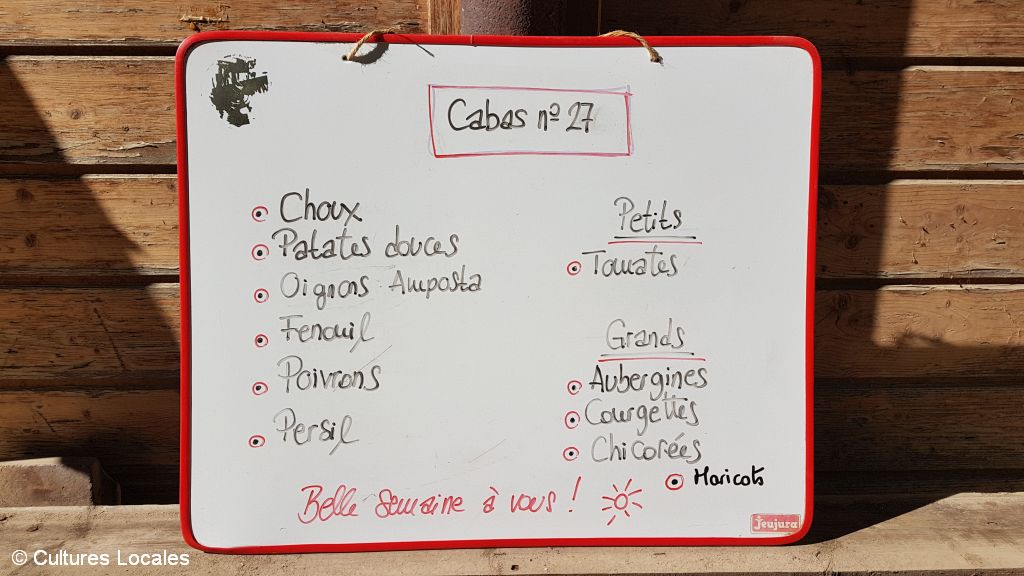 Cabas nº 27
Choux
Patates douces
Oignons Amposta
Fenouil
Poivrons
Persil
Petits
Tomates
Grands
Aubergines
Courgettes
Chicorées
Haricots
Belle semaine à vous !
Jeujura
© Cultures Locales